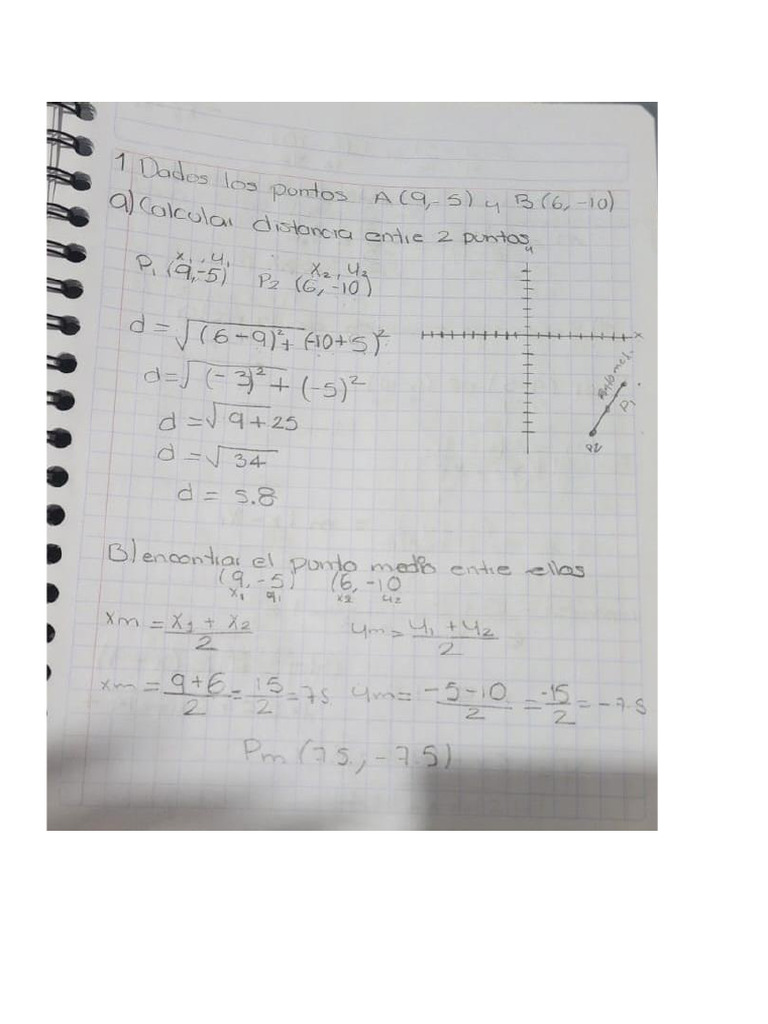 1 Dados los puntos A(9,-5) y B(6,-10)
a) Calcular distancia entre 2 puntos
x₁, y₁ x₂, y₂
P₁ (9,-5) P2 (6,-10)
y
x
d = √(6-9)² + (-10+5)²
d = √(-3)² + (-5)²
d = √9+25
d = √34
d = 5.8
P1
P2
B) encontrar el punto medio entre ellos
(9,-5) (6,-10
x₁ y₁ x₂ y₂
xm = x₁ + x₂ / 2 ym = y₁ + y₂ / 2
xm = 9+6 / 2 = 15 / 2 = 7.5 ym = -5-10 / 2 = -15 / 2 = -7.5
Pm (7.5, -7.5)